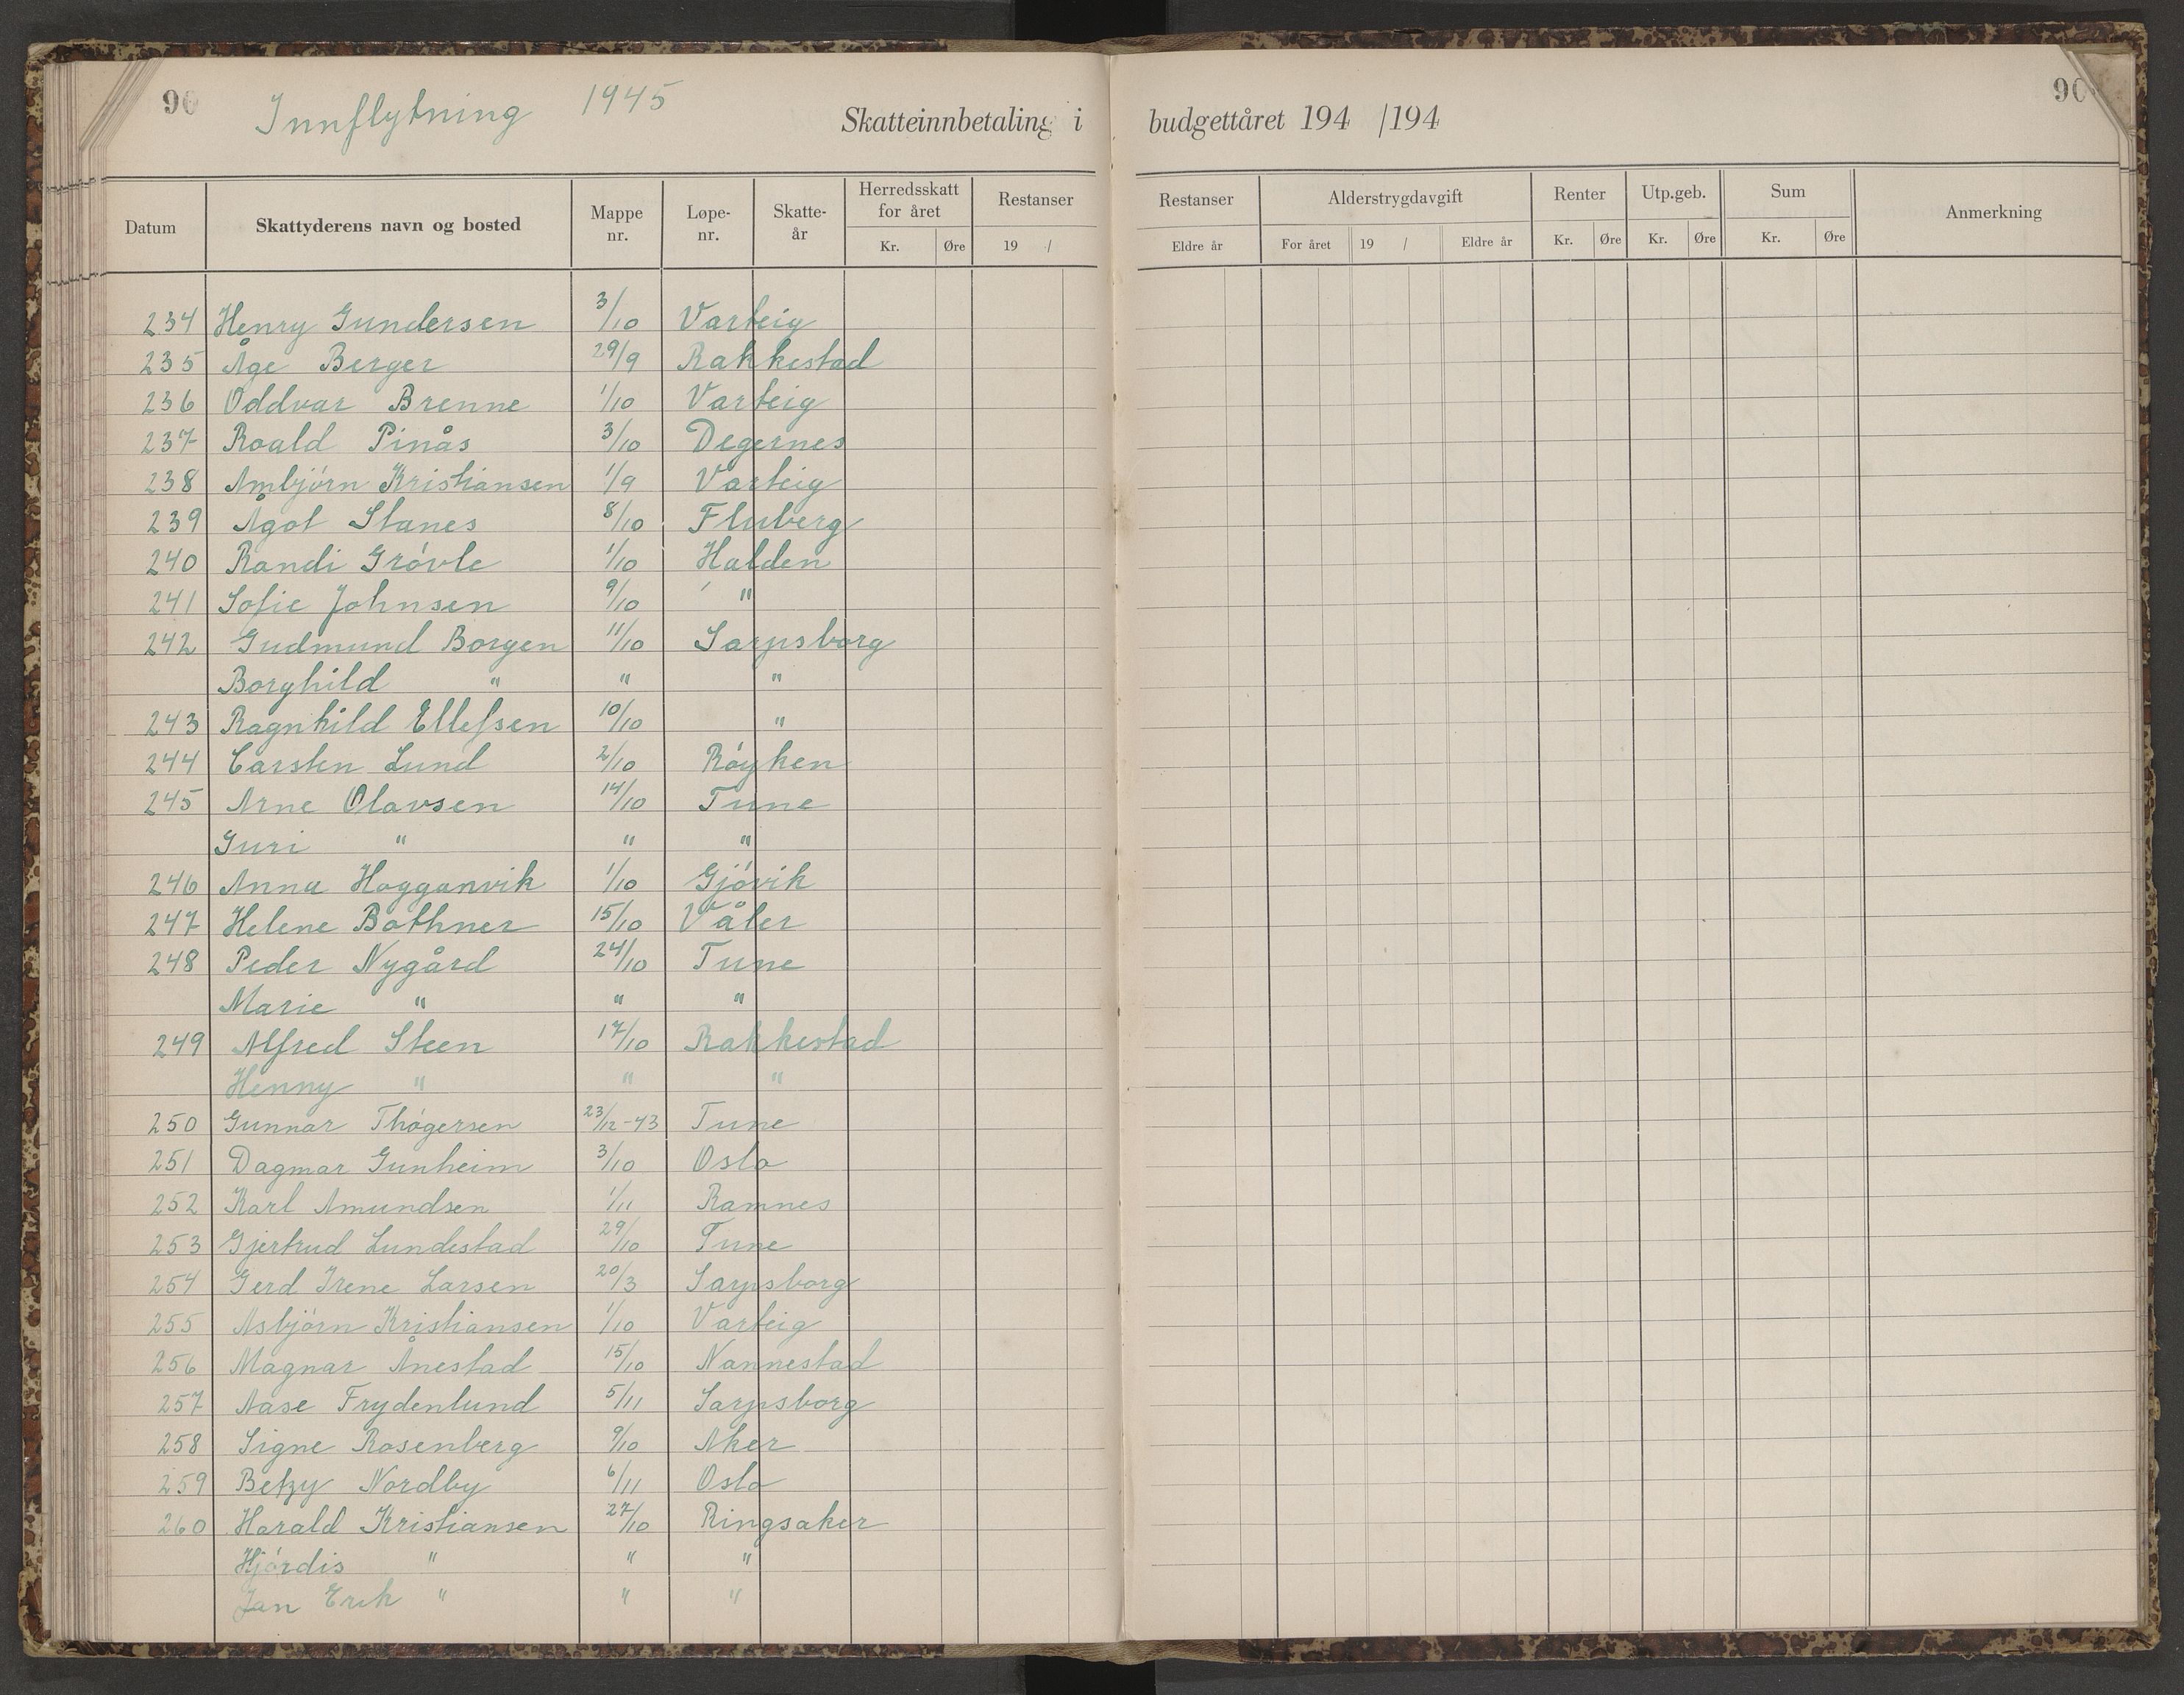 90 Innflytning 1945 90
Skatteinnbetaling i budgettåret 194 /194
Datum Skattyderens navn og bosted Mappe nr. Løpe-nr. Skatte-år Herredsskatt for året Kr. Øre Restanser 19 / Restanser Eldre år Alderstrygdavgift For året 19 / Eldre år Renter Kr. Øre Utp.geb. Kr. Øre Sum Kr. Øre Anmerkning
234 Henry Gundersen 3/10 Varteig
235 Åge Berger 29/9 Rakkestad
236 Oddvar Brenne 1/10 Varteig
237 Roald Pinås 3/10 Degernes
238 Ambjørn Kristiansen 1/9 Varteig
239 Ågot Stanes 8/10 Fluberg
240 Randi Grövle 1/10 Halden
241 Sofie Johnsen 9/10 "
242 Gudmund Borgen 11/10 Sarpsborg
Borghild " " "
243 Ragnhild Ellefsen 10/10 "
244 Carsten Lund 2/10 Röyken
245 Arne Olavsen 14/10 Tune
Guri " " "
246 Anna Hogganvik 1/10 Gjövik
247 Helene Bothner 15/10 Våler
248 Peder Nygård 24/10 Tune
Marie " " "
249 Alfred Steen 17/10 Rakkestad
Henny " " "
250 Gunnar Thögersen 23/12-43 Tune
251 Dagmar Gunheim 3/10 Oslo
252 Karl Amundsen 1/11 Ramnes
253 Gjertrud Lundestad 29/10 Tune
254 Gerd Irene Larsen 20/3 Sarpsborg
255 Asbjörn Kristiansen 1/10 Varteig
256 Magnar Ånestad 15/10 Nannestad
257 Aase Frydenlund 5/11 Sarpsborg
258 Signe Rosenberg 9/10 Aker
259 Betzy Nordby 6/11 Oslo
260 Harald Kristiansen 27/10 Ringsaker
Hjördis " " "
Jan Erik " " "